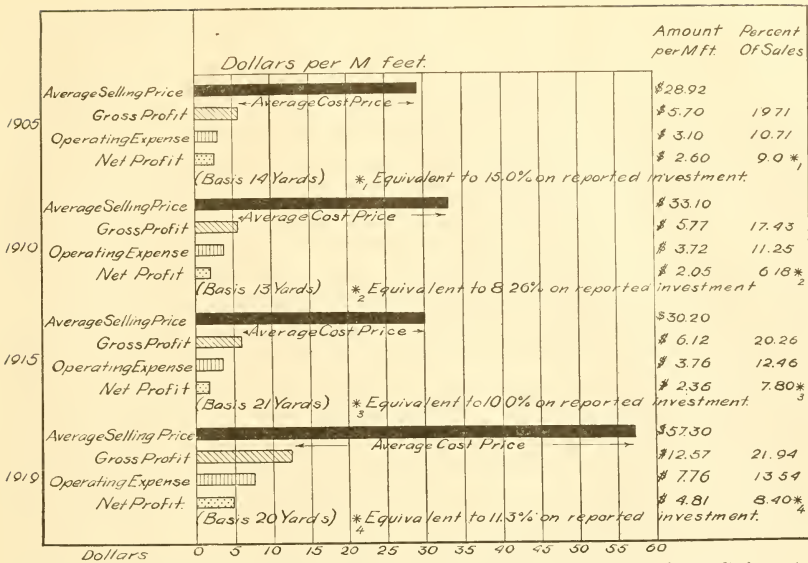 Amount Percent
per M ft. Of Sales
Dollars per M feet.
Average Selling Price $28.92
← Average Cost Price →
1905
Gross Profit $5.70 19 71
Operating Expense $ 3.10 10.71
Net Profit $ 2.60 9.0 *1
(Basis 14 Yards) *1 Equivalent to 15.0% on reported investment.
Average Selling Price $33.10
← Average Cost Price →
Gross Profit $ 5.77 17.43
1910
Operating Expense $ 3.72 11.25
Net Profit $ 2.05 6 18 *2
(Basis 13 Yards) *2 Equivalent to 8 26% on reported investment
Average Selling Price $30.20
← Average Cost Price →
Gross Profit $ 6.12 20.26
1915
Operating Expense $ 3.76 12.46
Net Profit $ 2.36 7.80 *3
(Basis 21 Yards) *3 Equivalent to 10.0% on reported investment.
Average Selling Price $57.30
← Average Cost Price →
Gross Profit $12.57 21.94
1919
Operating Expense $ 7.76 13 54
Net Profit. $ 4.81 8.40 *4
(Basis 20 Yards) *4 Equivalent to 11.3% on reported investment.
Dollars 0 5 10 15 20 25 30 35 40 45 50 55 60